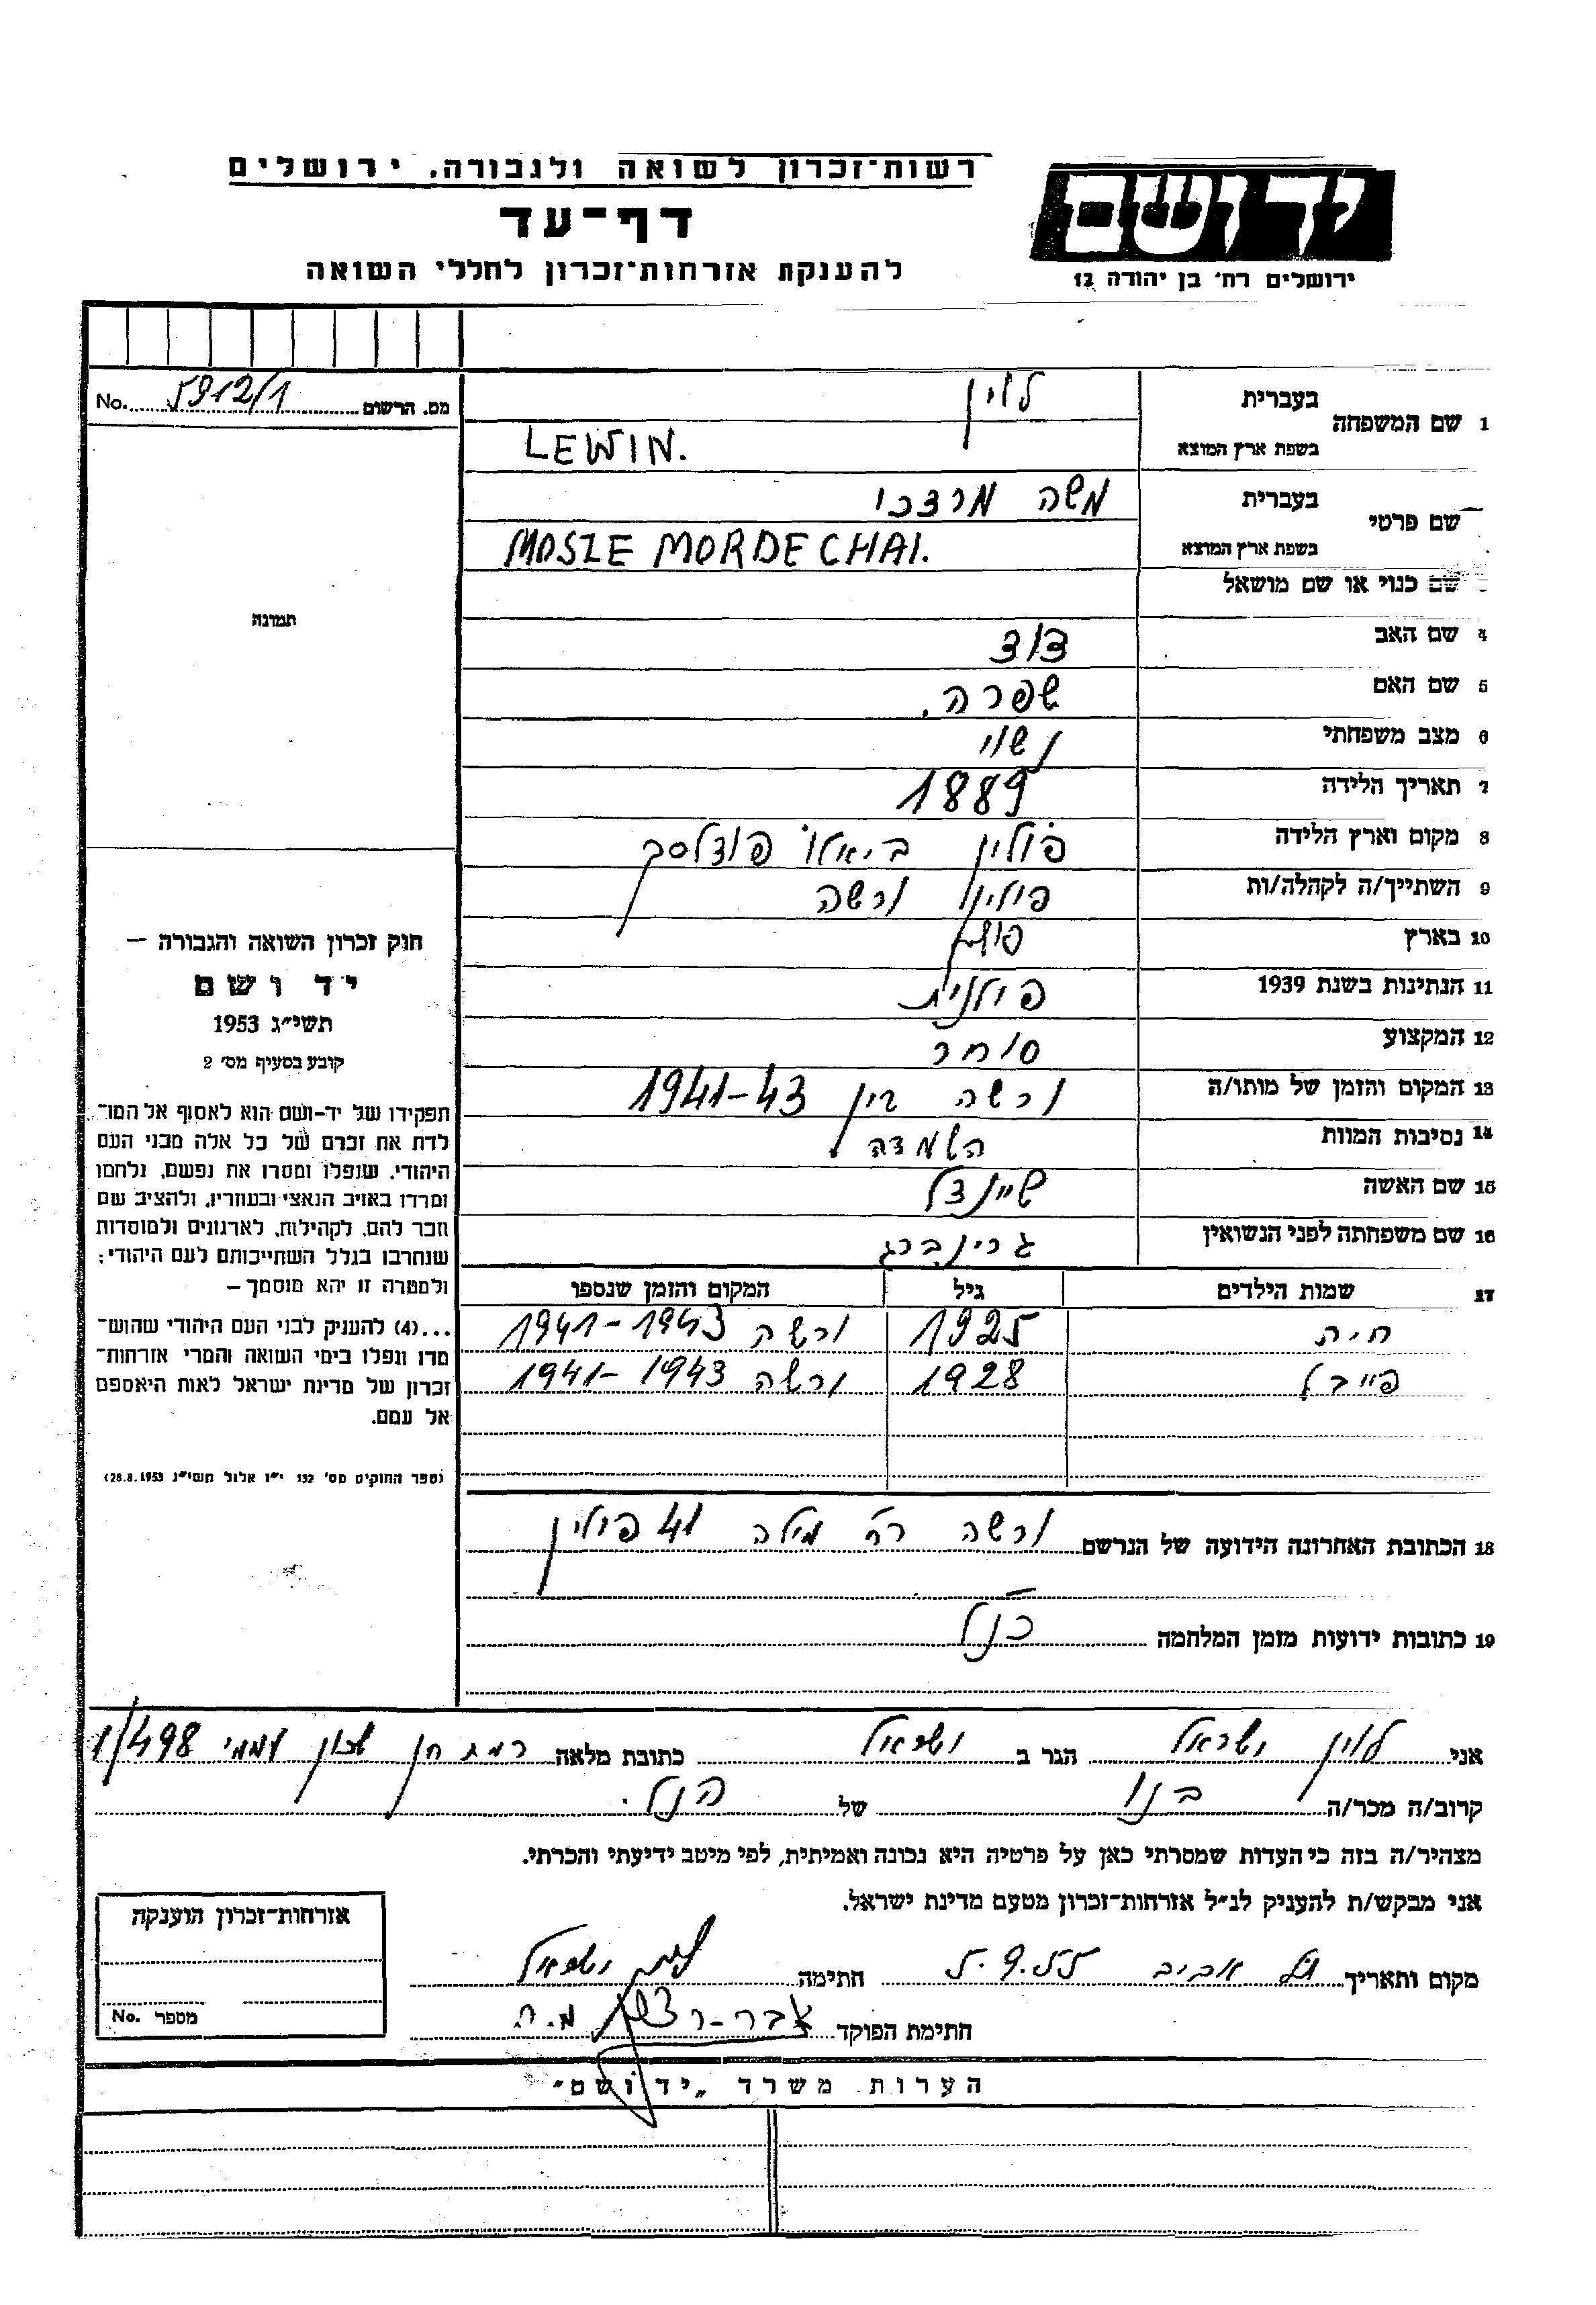 רשות־זכרון לשואה ולגבורה, ירושלים
דף־עד
להענקת אזרחות־זכרון לחללי השואה
יד ושם
ירושלים רח' בן יהודה 12
מס. הרשום No. 5912/1
1 שם המשפחה בעברית לוין
בשפת ארץ המוצא LEWIN.
שם פרטי בעברית משה מרדכי
בשפת ארץ המוצא MOSZE MORDECHAI.
שם כנוי או שם מושאל
4 שם האב דוד
5 שם האם שפרה.
6 מצב משפחתי נשוי
7 תאריך הלידה 1889
8 מקום וארץ הלידה פולין ביאלו פודלסק
9 השתייך/ה לקהלה/ות פולין ורשה
10 בארץ פולין
11 הנתינות בשנת 1939 פולנית
12 המקצוע סוחר
13 המקום והזמן של מותו/ה ורשה בין 1941-43
14 נסיבות המוות השמדה
15 שם האשה שיינדל
16 שם משפחתה לפני הנשואין גרינברג
17 שמות הילדים גיל המקום והזמן שנספו
חית 1925 ורשה 1941-1943
פייבל 1928 ורשה 1941-1943
18 הכתובת האחרונה הידועה של הנרשם ורשה רח' מילה 41 פולין
19 כתובות ידועות מזמן המלחמה כנ"ל
תמונה
חוק זכרון השואה והגבורה —
יד ושם
תשי״ג 1953
קובע בסעיף מס' 2
תפקידו של יד-ושם הוא לאסוף אל המו־
לדת את זכרם של כל אלה מבני העם
היהודי, שנפלו ומסרו את נפשם, נלחמו
ומרדו באויב הנאצי ובעוזריו, ולהציב שם
וזכר להם, לקהילות, לארגונים ולמוסדות
שנחרבו בגלל השתייכותם לעם היהודי;
ולמטרה זו יהא מוסמך —
...(4) להעניק לבני העם היהודי שהוש־
מדו ונפלו בימי השואה והמרי אזרחות־
זכרון של מדינת ישראל לאות היאספם
אל עמם.
(ספר החוקים מס' 132 י״ז אלול תשי״ג 28.8.1953)
אני לוין ישראל הגר ב ישראל כתובת מלאה רמת חן שכון עממי 1/498
קרוב/ה מכר/ה בנו של הנ"ל.
מצהיר/ה בזה כי העדות שמסרתי כאן על פרטיה היא נכונה ואמיתית, לפי מיטב ידיעתי והכרתי.
אני מבקש/ת להעניק לנ״ל אזרחות־זכרון מטעם מדינת ישראל.
מקום ותאריך תל אביב 5.9.55 חתימה לוין ישראל
חתימת הפוקד
אזרחות־זכרון הוענקה
מספר No.
הערות משרד „יד ושם"